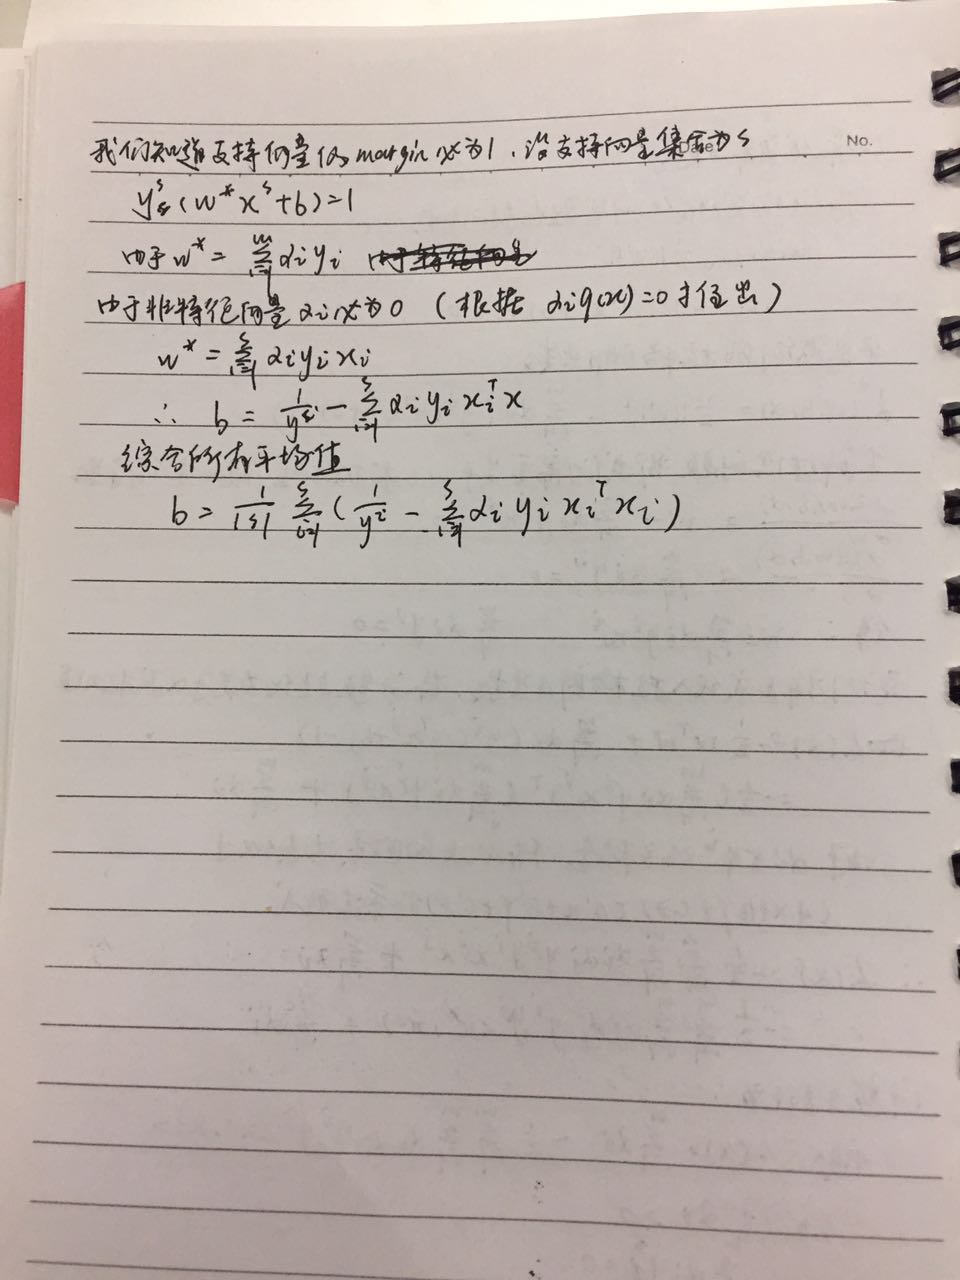 No.
Date
我们知道支持向量的margin必为1,设支持向量集合为s
yˢ(w*xˢ+b)=1
由于w* = Σᵢ₌₁ᵐ αᵢyᵢ
由于非特征向量αᵢ必为0 (根据 αᵢg(x)=0才经出)
w* = Σᵢ₌₁ˢ αᵢyᵢxᵢ
∴ b = 1/yˢⁱ − Σᵢ₌₁ˢ αᵢyᵢxᵢᵀx
综合所有平均值
b = 1/|s| Σᵢ₌₁ˢ (1/yⁱ − Σᵢ₌₁ˢ αᵢyᵢxᵢᵀxᵢ)